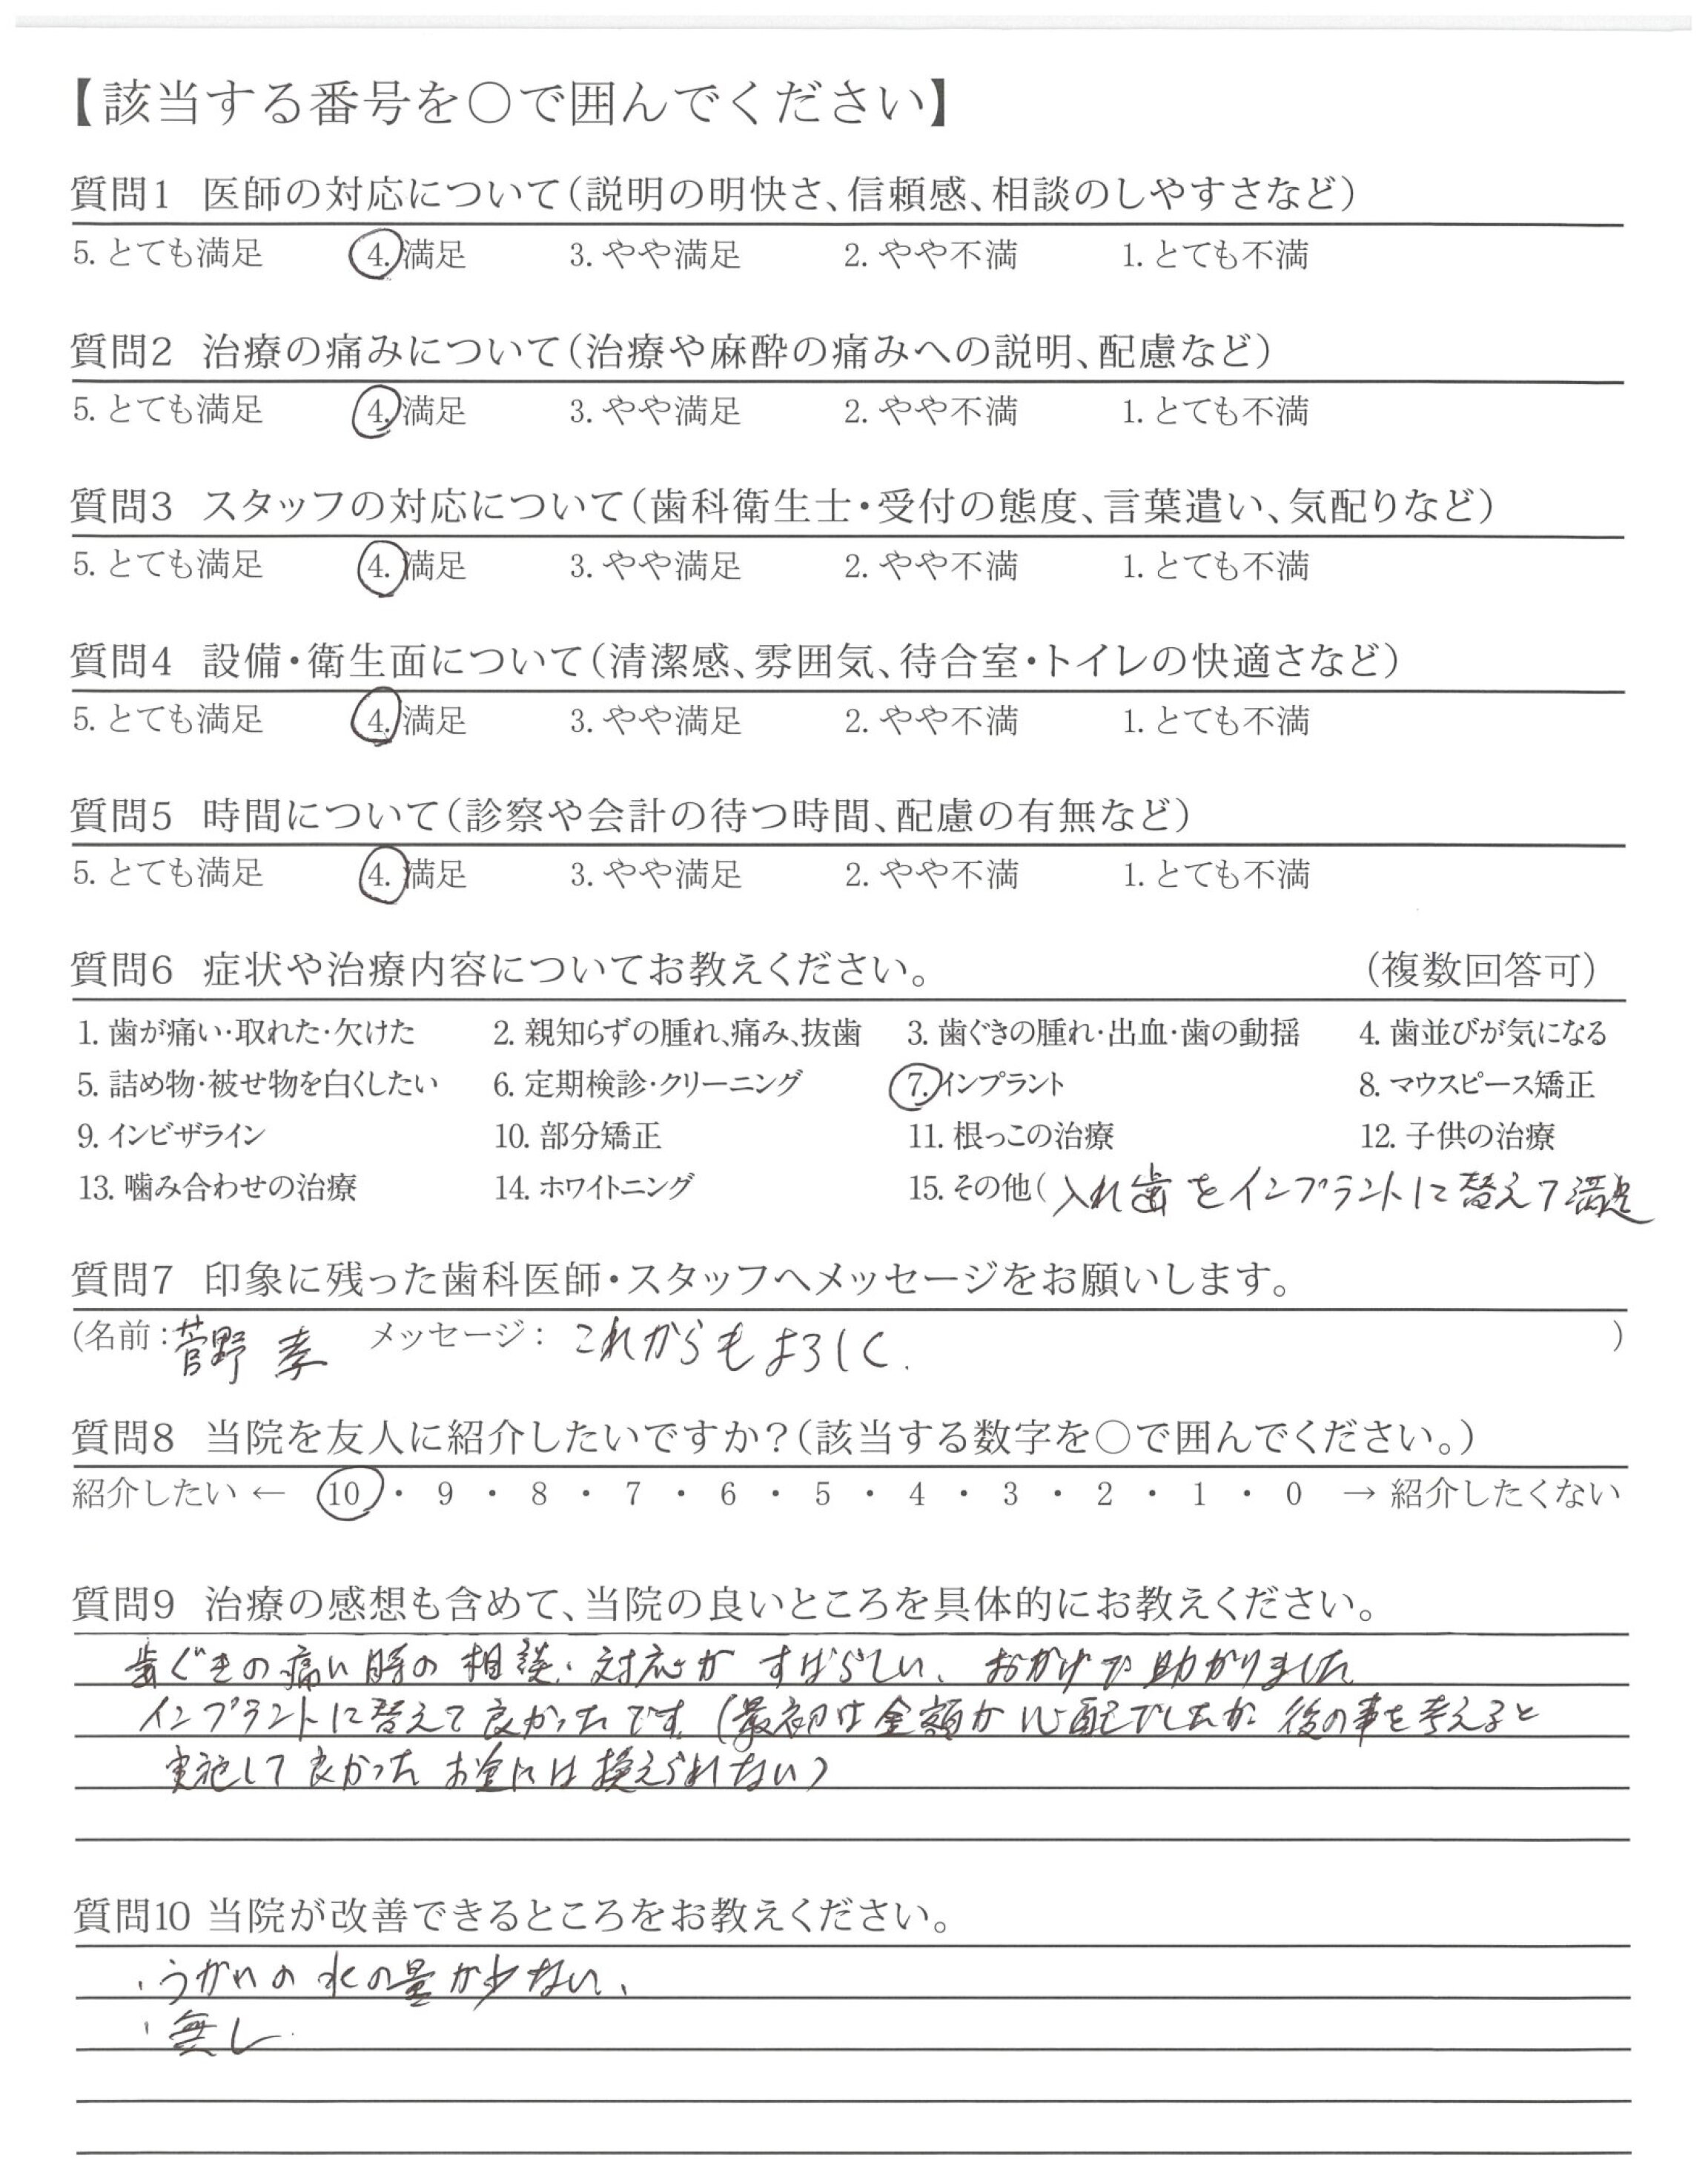 【該当する番号を〇で囲んでください】
質問1 医師の対応について(説明の明快さ、信頼感、相談のしやすさなど)
5. とても満足 4. 満足 3. やや満足 2. やや不満 1. とても不満
質問2 治療の痛みについて(治療や麻酔の痛みへの説明、配慮など)
5. とても満足 4. 満足 3. やや満足 2. やや不満 1. とても不満
質問3 スタッフの対応について(歯科衛生士・受付の態度、言葉遣い、気配りなど)
5. とても満足 4. 満足 3. やや満足 2. やや不満 1. とても不満
質問4 設備・衛生面について(清潔感、雰囲気、待合室・トイレの快適さなど)
5. とても満足 4. 満足 3. やや満足 2. やや不満 1. とても不満
質問5 時間について(診察や会計の待つ時間、配慮の有無など)
5. とても満足 4. 満足 3. やや満足 2. やや不満 1. とても不満
質問6 症状や治療内容についてお教えください。 (複数回答可)
1. 歯が痛い・取れた・欠けた 2. 親知らずの腫れ、痛み、抜歯 3. 歯ぐきの腫れ・出血・歯の動揺 4. 歯並びが気になる
5. 詰め物・被せ物を白くしたい 6. 定期検診・クリーニング 7. インプラント 8. マウスピース矯正
9. インビザライン 10. 部分矯正 11. 根っこの治療 12. 子供の治療
13. 噛み合わせの治療 14. ホワイトニング 15. その他( 入れ歯をインプラントに替えて満足
質問7 印象に残った歯科医師・スタッフへメッセージをお願いします。
(名前: 菅野 孝 メッセージ: これからもよろしく. )
質問8 当院を友人に紹介したいですか?(該当する数字を〇で囲んでください。)
紹介したい ← 10 ・ 9 ・ 8 ・ 7 ・ 6 ・ 5 ・ 4 ・ 3 ・ 2 ・ 1 ・ 0 → 紹介したくない
質問9 治療の感想も含めて、当院の良いところを具体的にお教えください。
歯ぐきの痛い時の相談・対応が すばらしい、おかげで助かりました
インプラントに替えて良かったです。(最初は金額が心配でしたが 後の事を考えると
実施して良かった お金には換えられない)
質問10 当院が改善できるところをお教えください。
・うがいの水の量が少ない、
・無し